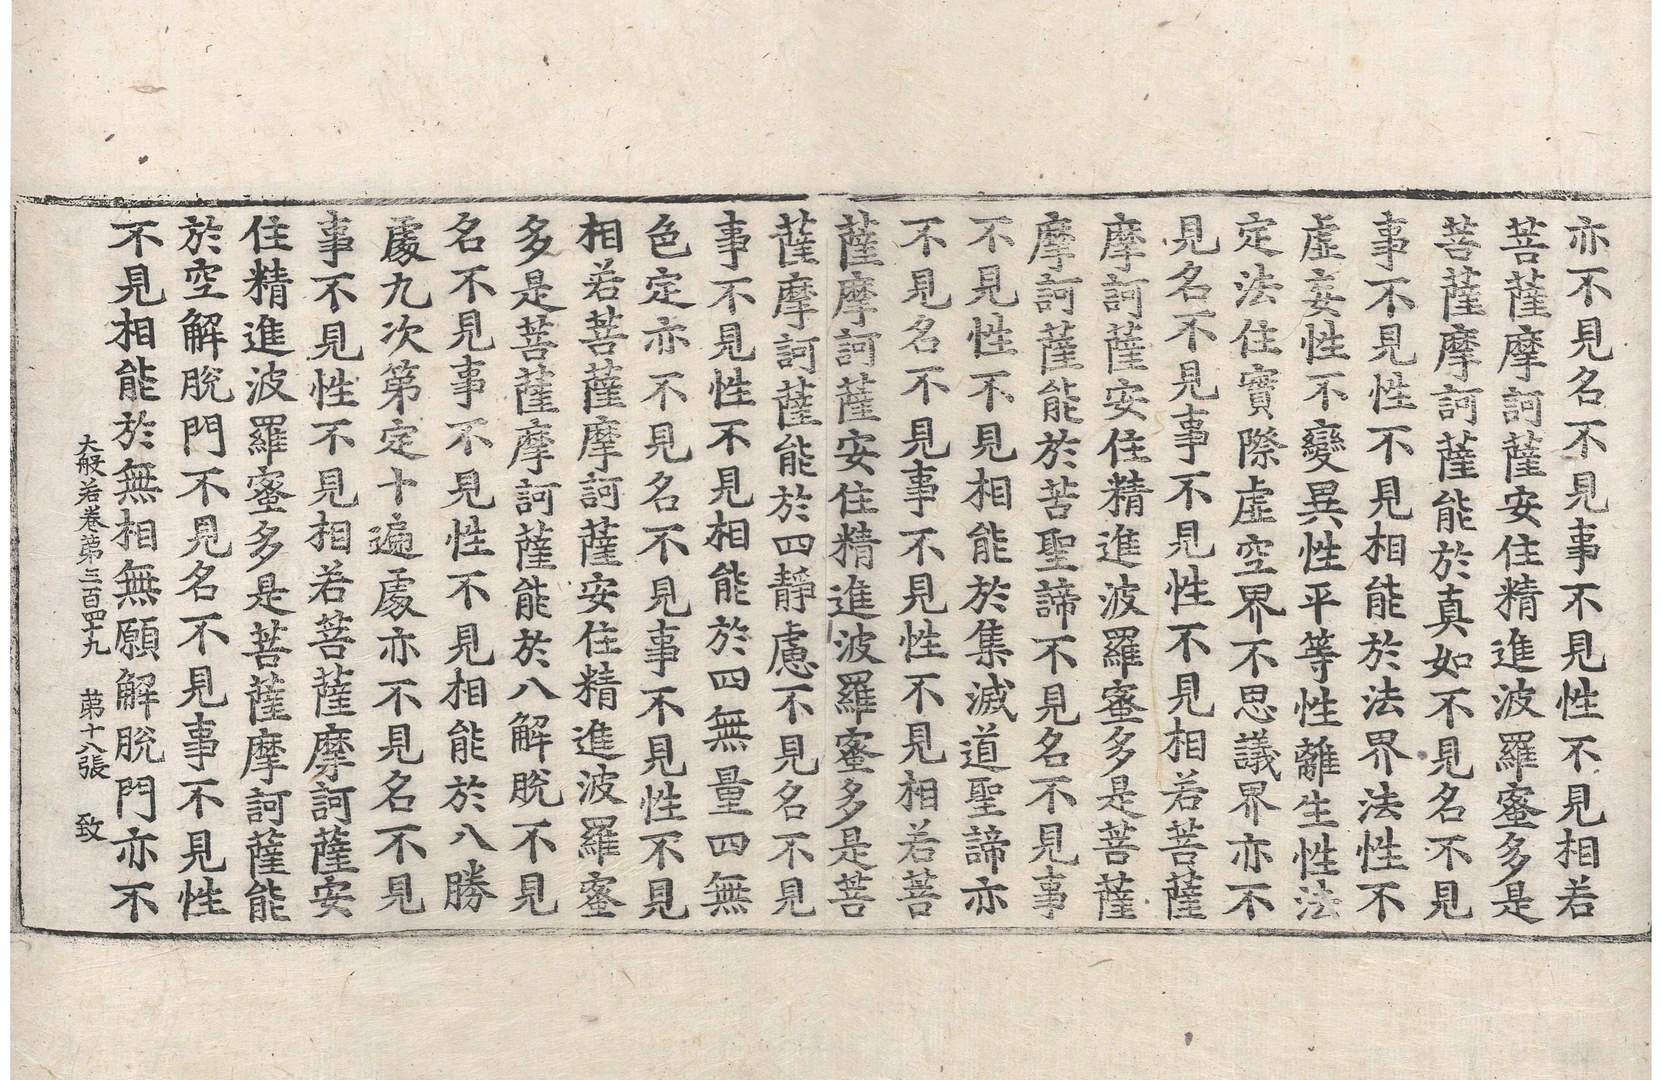 亦不見名不見事不見性不見相若
菩薩摩訶薩安住精進波羅蜜多是
菩薩摩訶薩能於真如不見名不見
事不見性不見相能於法界法性不
虛妄性不變異性平等性離生性法
定法住實際虛空界不思議界亦不
見名不見事不見性不見相若菩薩
摩訶薩安住精進波羅蜜多是菩薩
摩訶薩能於苦聖諦不見名不見事
不見性不見相能於集滅道聖諦亦
不見名不見事不見性不見相若菩
薩摩訶薩安住精進波羅蜜多是菩
薩摩訶薩能於四靜慮不見名不見
事不見性不見相能於四無量四無
色定亦不見名不見事不見性不見
相若菩薩摩訶薩安住精進波羅蜜
多是菩薩摩訶薩能於八解脫不見
名不見事不見性不見相能於八勝
處九次第定十遍處亦不見名不見
事不見性不見相若菩薩摩訶薩安
住精進波羅蜜多是菩薩摩訶薩能
於空解脫門不見名不見事不見性
不見相能於無相無願解脫門亦不
大般若卷第三百四十九 第十八張 致